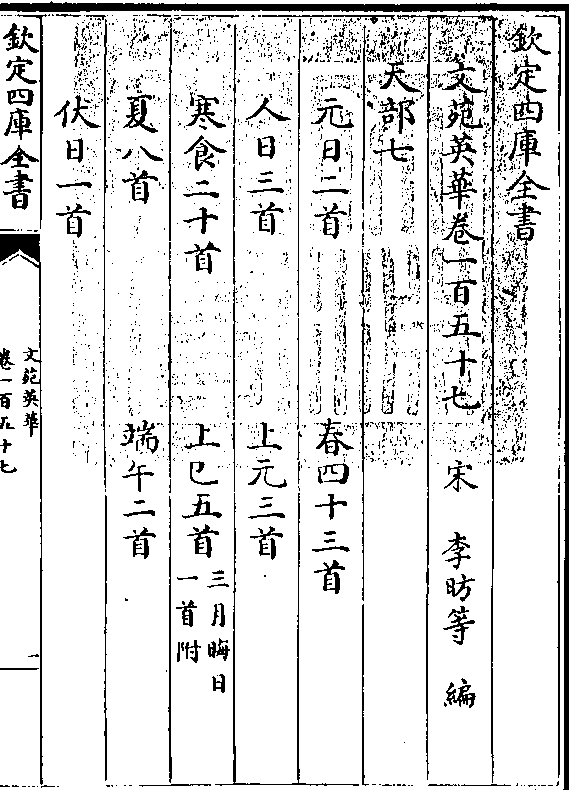 欽定四庫全書
文苑英華卷一百五十七
宋 李昉等 編
天部七
元日二首 春四十三首
人日三首 上元三首
寒食二十首 上巳五首 三月晦日一首附
夏八首 端午二首
伏日一首
欽定四庫全書
文苑英華
卷一百五十七
一